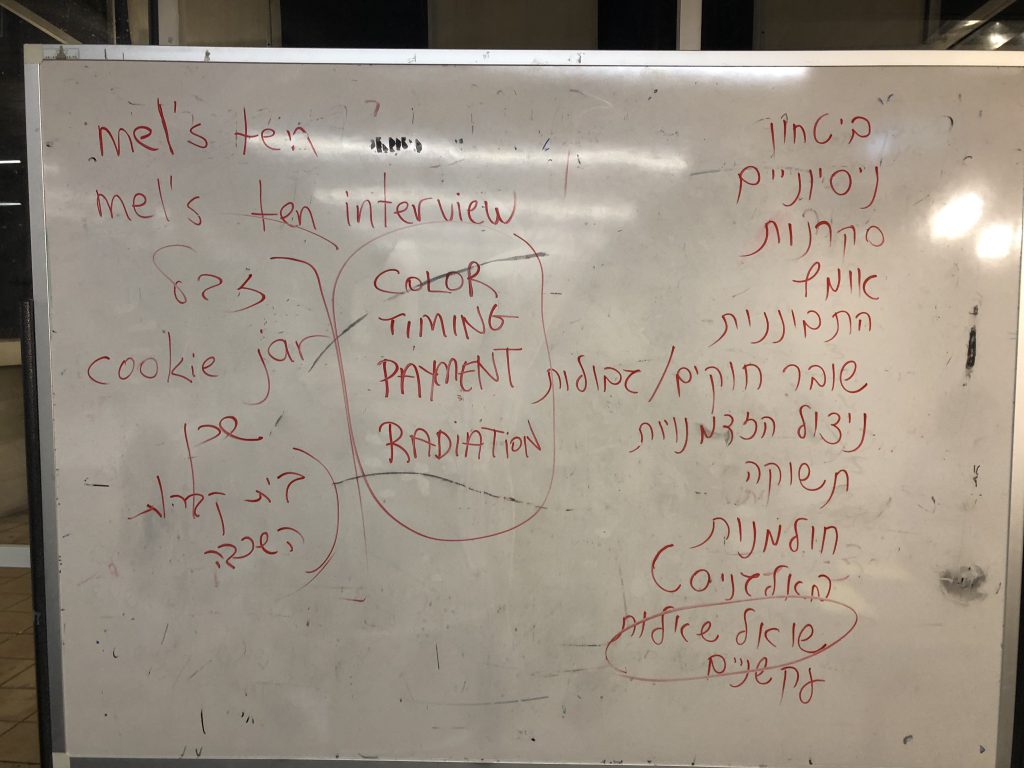 mel's ten
mel's ten interview
cookie jar
שכן
בית קברות
COLOR
TIMING
PAYMENT
RADIATION
ביטחון
ניסיוניים
סקרנות
אומץ
התבוננות
שובר חוקים/גבולות
ניצול הזדמנויות
תשוקה
חולמנות
שואל שאלות
עקשניים